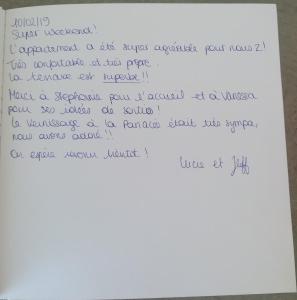 10/02/19
Super weekend!
L'appartement a été super agréable pour nous 2!
Très confortable et très propre.
La terrasse est superbe!!
Merci à Stephanie pour l'accueil et à Vanessa
pour ses idées de sorties!
Le vernissage à la Panacée était très sympa,
nous avons adoré!!
On espère revenir bientôt!
Lucie et Jeff